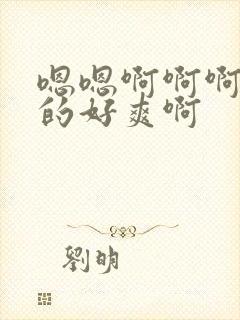 嗯嗯啊啊啊
的好爽啊
劉明